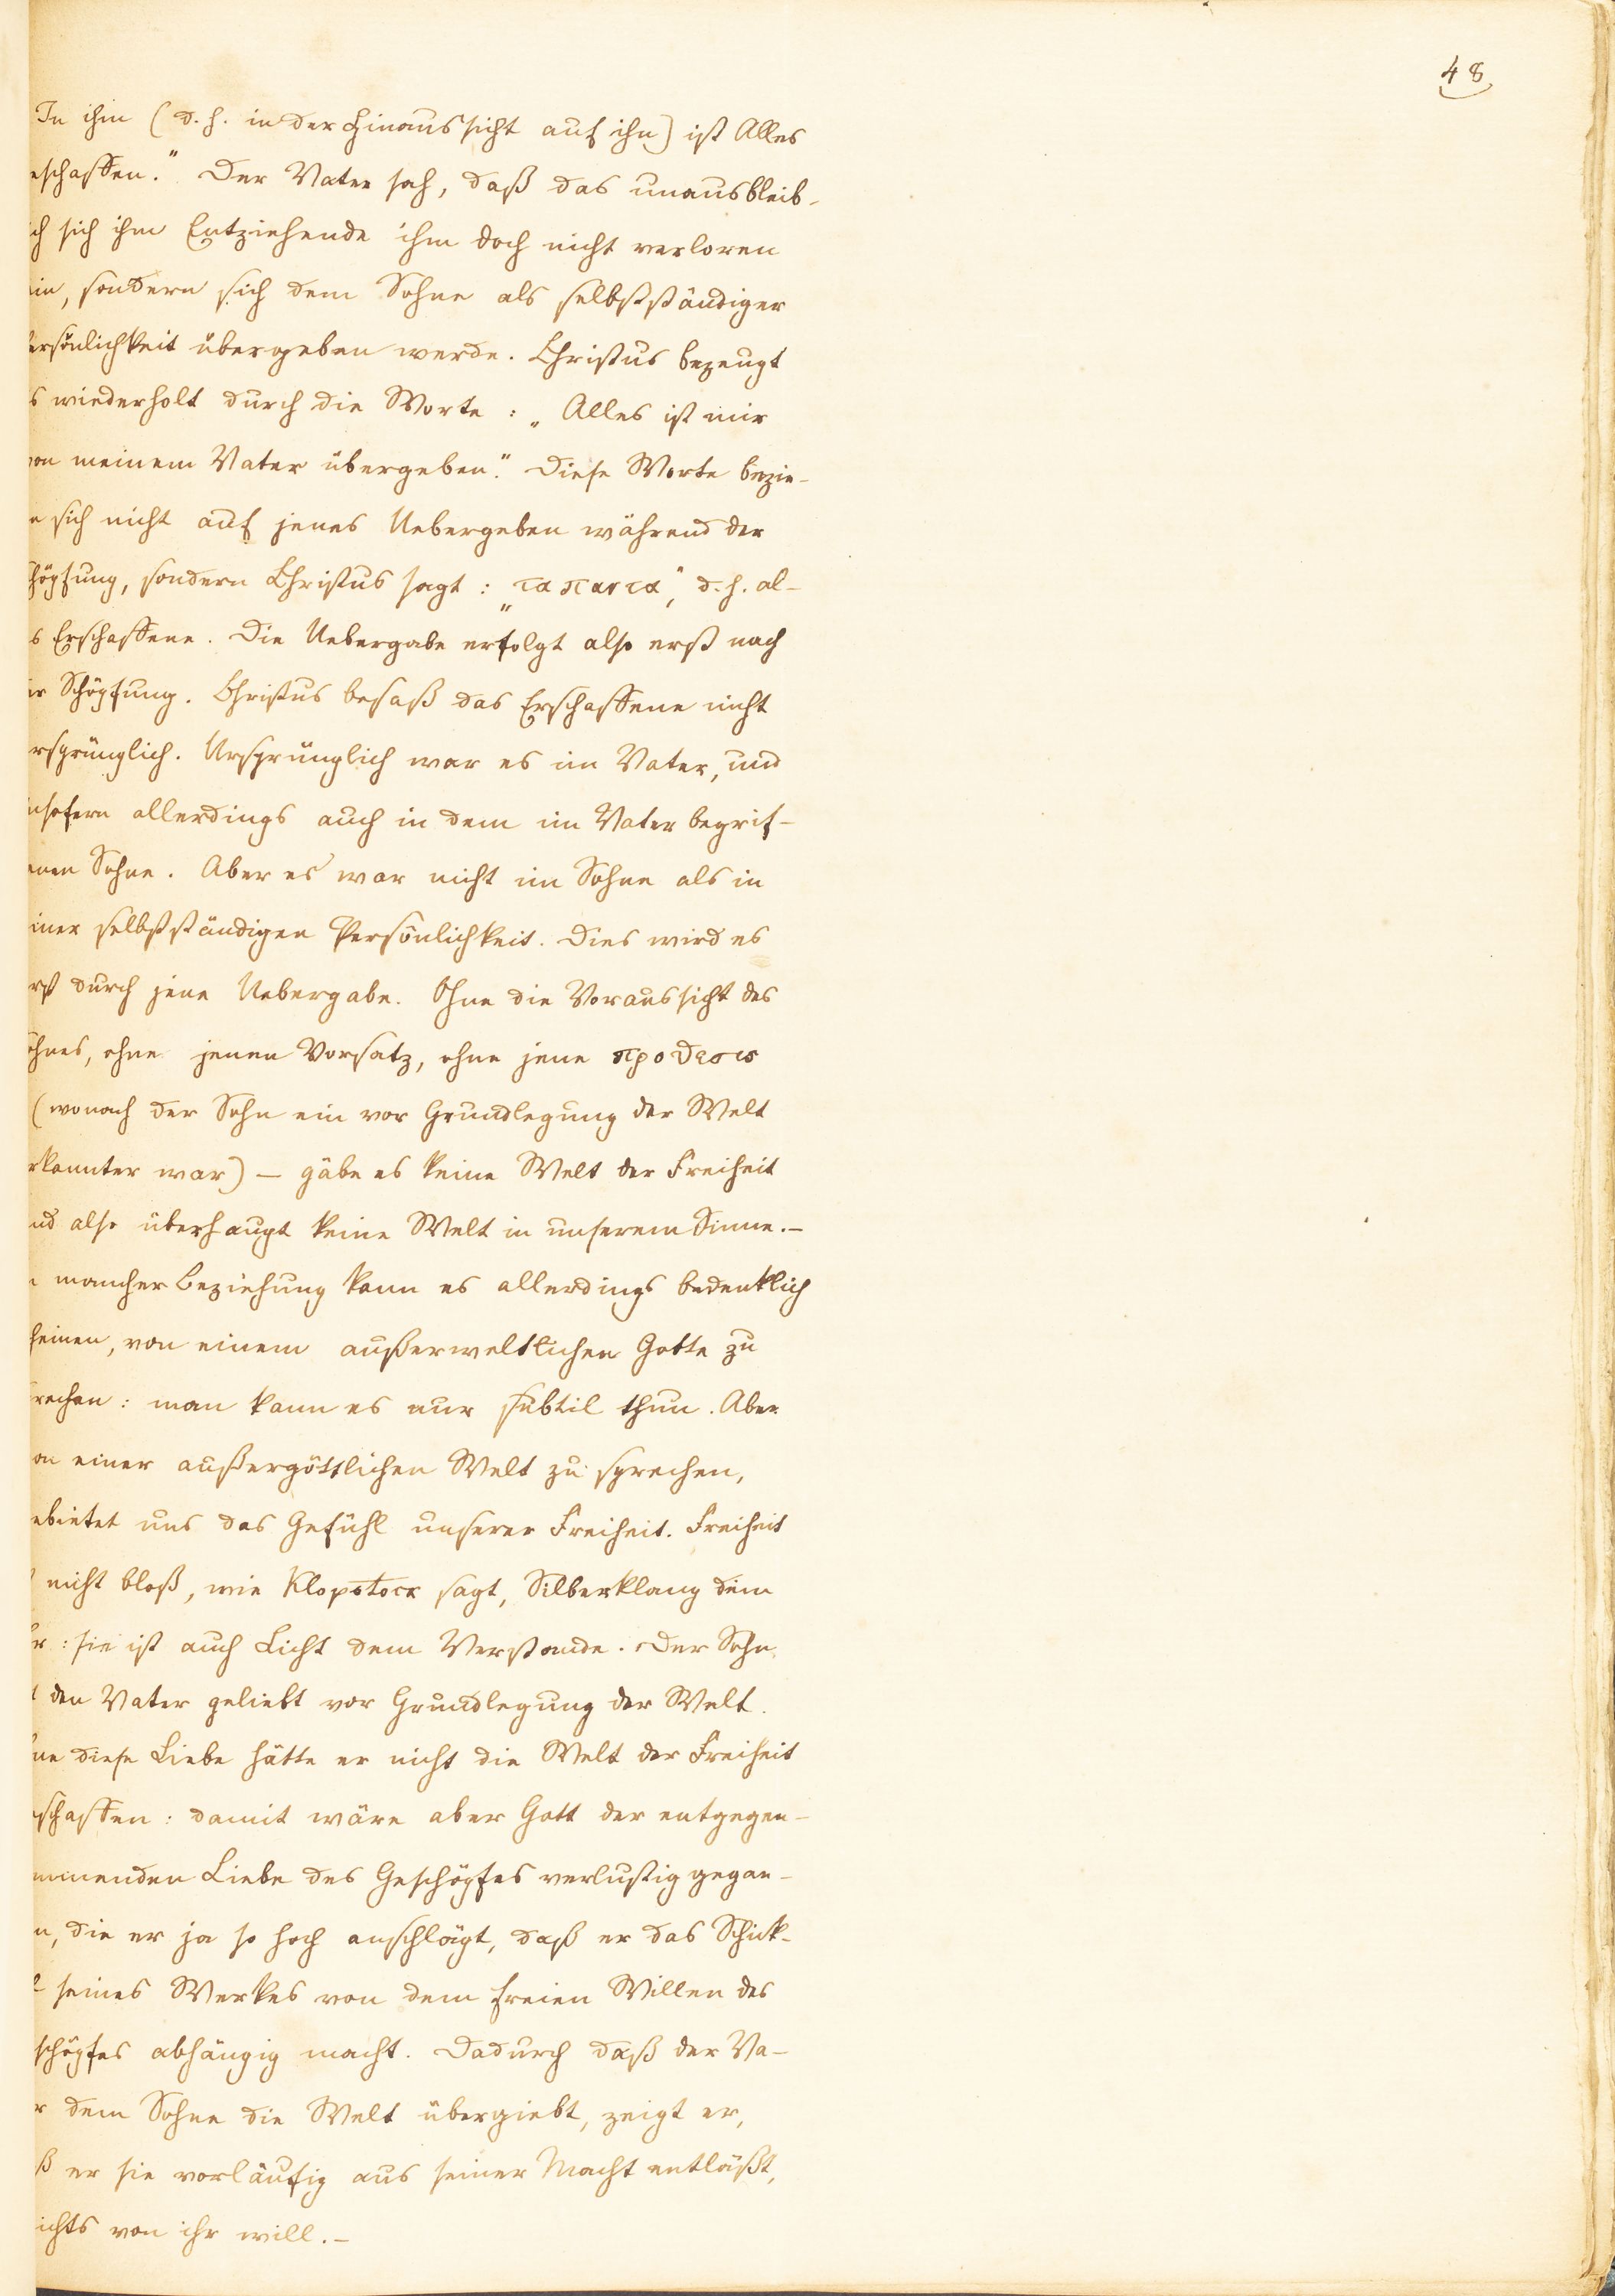 48
In ihm (d. h. in der Hinaussicht auf ihn) ist Alles
eschaffen." Der Vater sah, daß das unausbleib-
ch sich ihm Entziehende ihm doch nicht verloren
ein, sondern sich dem Sohne als selbstständiger
ersönlichkeit übergeben werde. Christus bezeugt
s wiederholt durch die Worte: „Alles ist mir
von meinem Vater übergeben." Diese Worte bezie-
n sich nicht auf jenes Uebergeben während der
höpfung, sondern Christus sagt: „τα παντα", d. h. al-
s Erschaffene. Die Uebergabe erfolgt also erst nach
er Schöpfung. Christus besaß das Erschaffene nicht
rsprünglich. Ursprünglich war es im Vater, und
nsofern allerdings auch in dem im Vater begrif-
enen Sohne. Aber es war nicht im Sohne als in
iner selbstständigen Persönlichkeit. Dies wird es
rst durch jene Uebergabe. Ohne die Voraussicht des
ohnes, ohne jenen Vorsatz, ohne jene προθεσις
(wonach der Sohn ein vor Grundlegung der Welt
rkannter war) — gäbe es keine Welt der Freiheit
nd also überhaupt keine Welt in unserem Sinne. —
n mancher Beziehung kann es allerdings bedenklich
heinen, von einem außerweltlichen Gotte zu
rechen: man kann es nur subtil thun. Aber
on einer außergöttlichen Welt zu sprechen,
ebietet uns das Gefühl unserer Freiheit. Freiheit
t nicht bloß, wie Klopstock sagt, Silberklang dem
hr: sie ist auch Licht dem Verstande. Der Sohn
t den Vater geliebt vor Grundlegung der Welt.
hne diese Liebe hätte er nicht die Welt der Freiheit
schaffen: damit wäre aber Gott der entgegen-
mmenden Liebe des Geschöpfes verlustig gegan-
n, die er ja so hoch anschlägt, daß er das Schick-
l seines Werkes von dem freien Willen des
schöpfes abhängig macht. Dadurch daß der Va-
r dem Sohne die Welt übergiebt, zeigt er,
ß er sie vorläufig aus seiner Macht entläßt,
ichts von ihr will. —